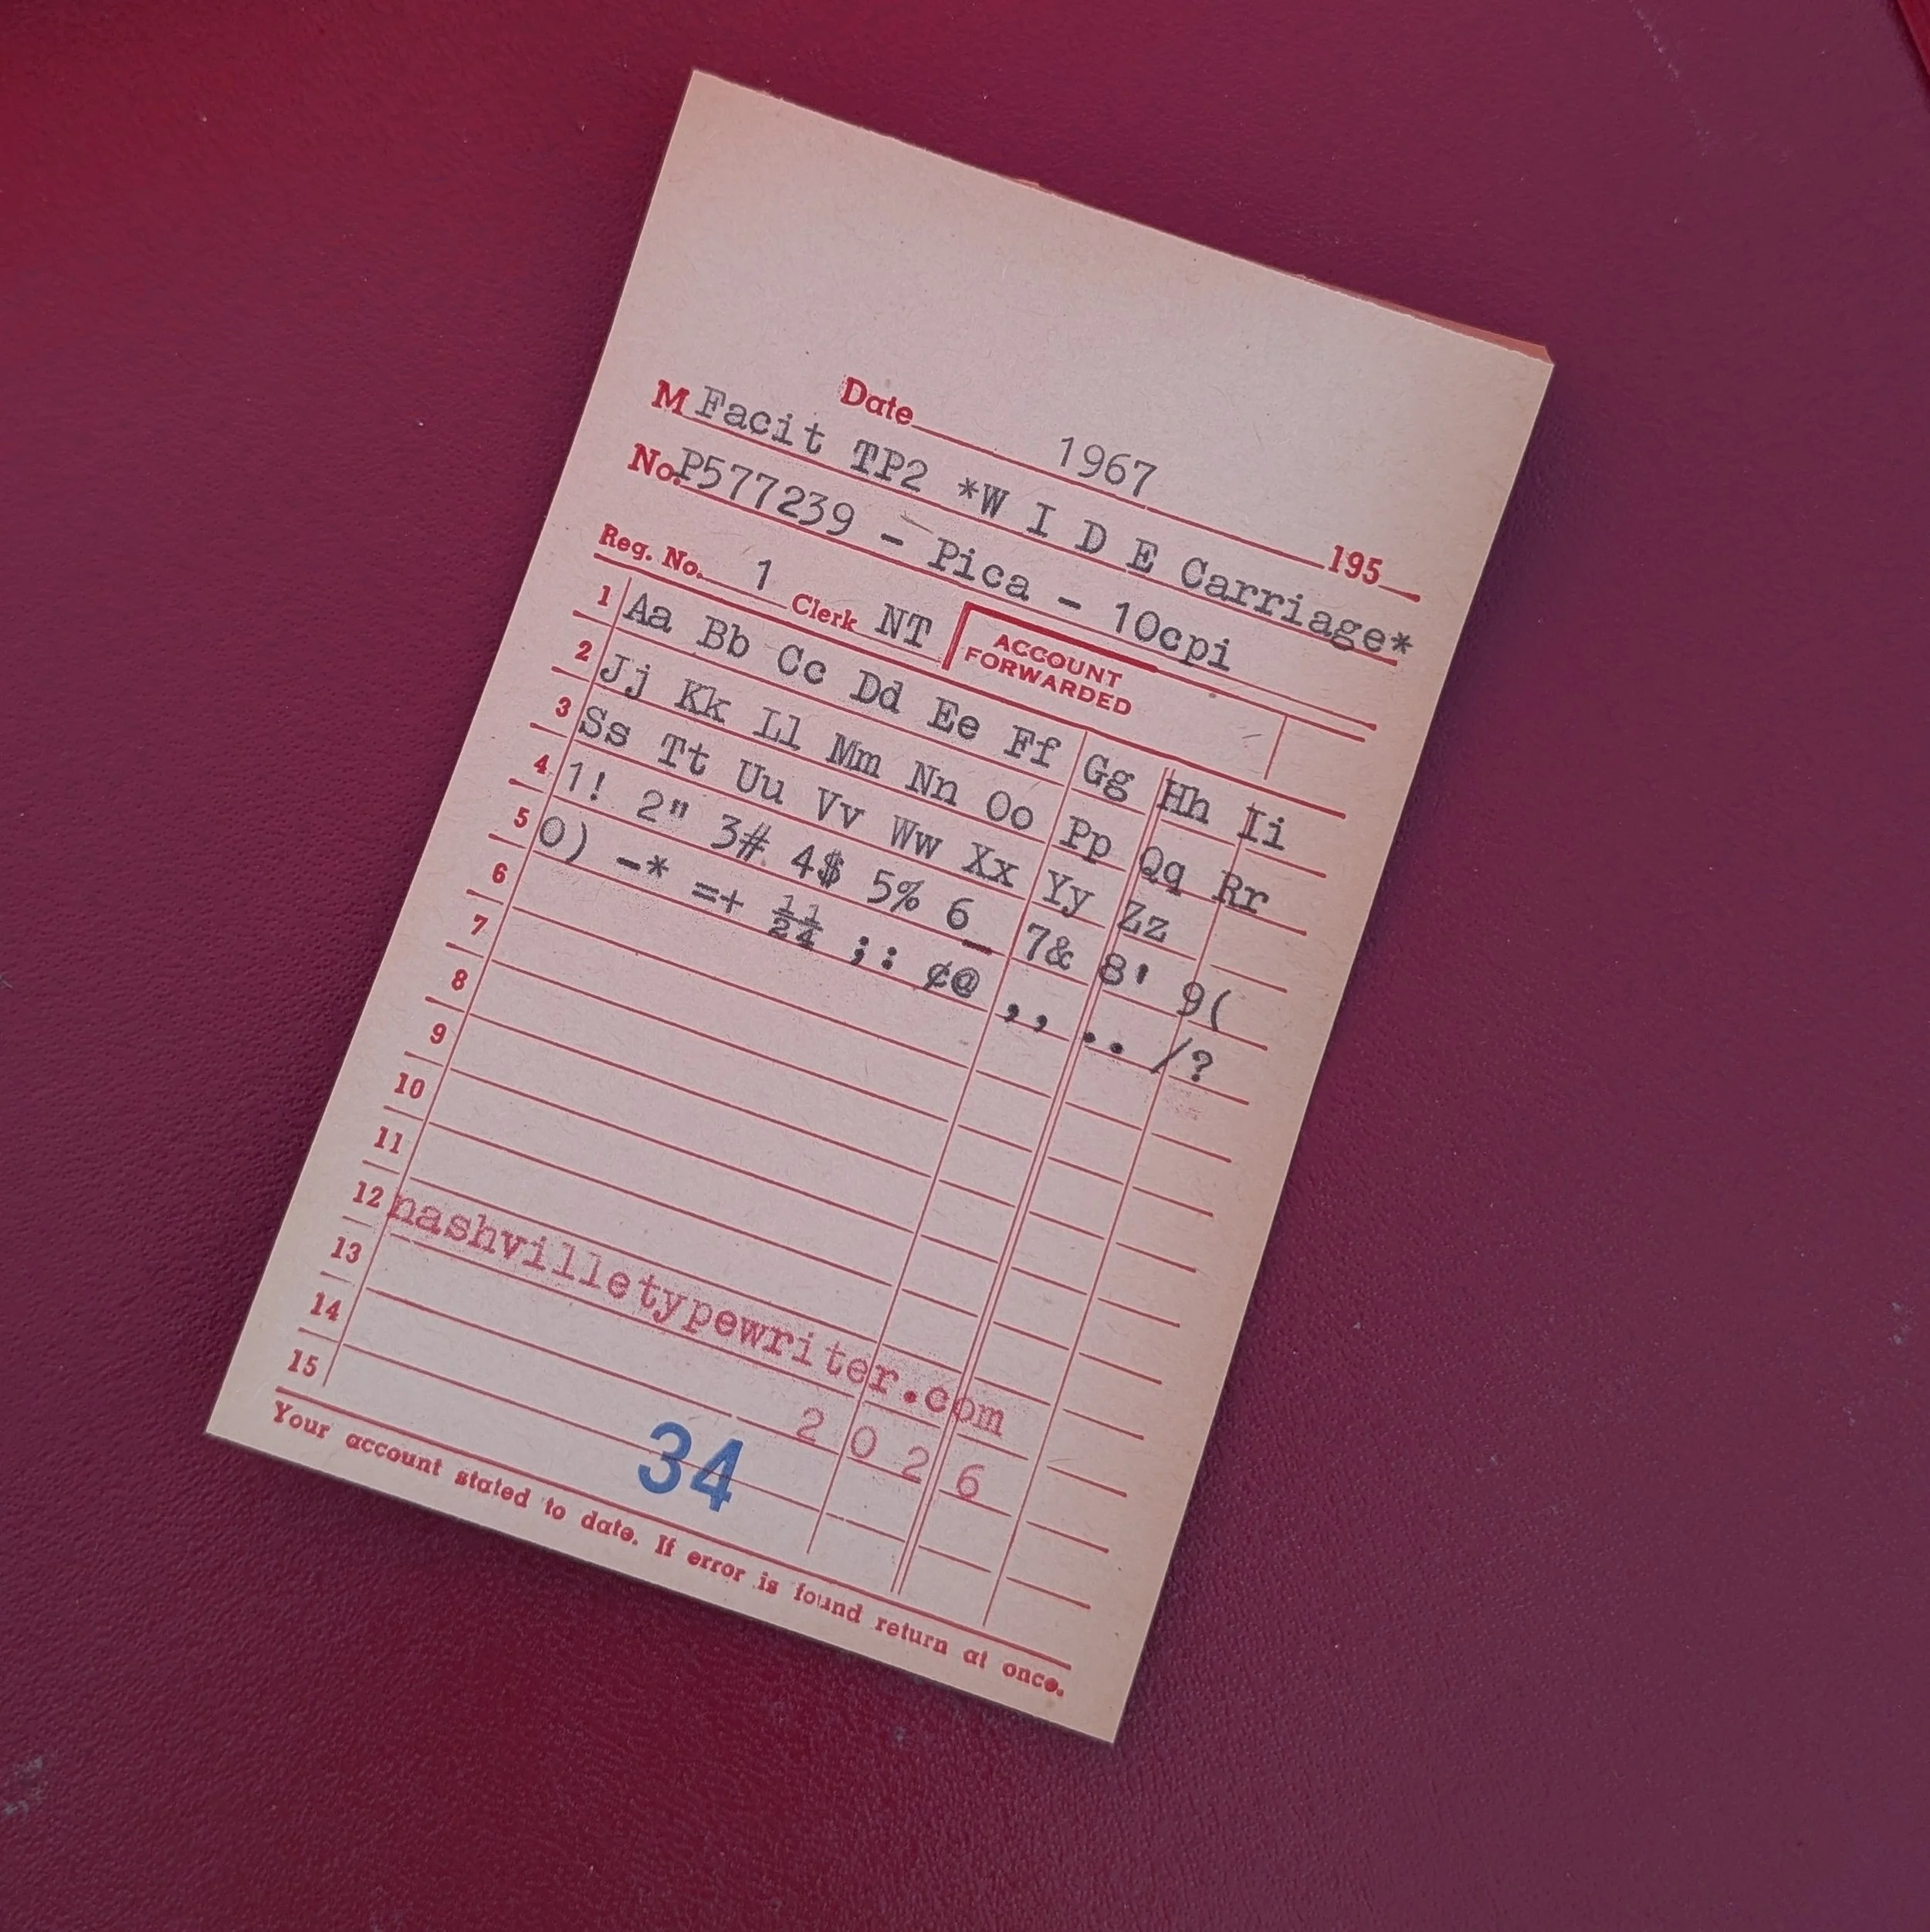 Date 1967 195
M Facit TP2 *W I D E Carriage*
No. P577239 - Pica - 10cpi
Reg. No. 1 Clerk NT ACCOUNT FORWARDED
1 Aa Bb Cc Dd Ee Ff Gg Hh Ii
2 Jj Kk Ll Mm Nn Oo Pp Qq Rr
3 Ss Tt Uu Vv Ww Xx Yy Zz
4 1! 2" 3# 4$ 5% 6_ 7& 8' 9(
5 0) -* =+ ½¼ ;: ¢@ ,, .. /?
6
7
8
9
10
11
12 nashvilletypewriter.com
13 2 0 2 6
14
15
34
Your account stated to date. If error is found return at once.